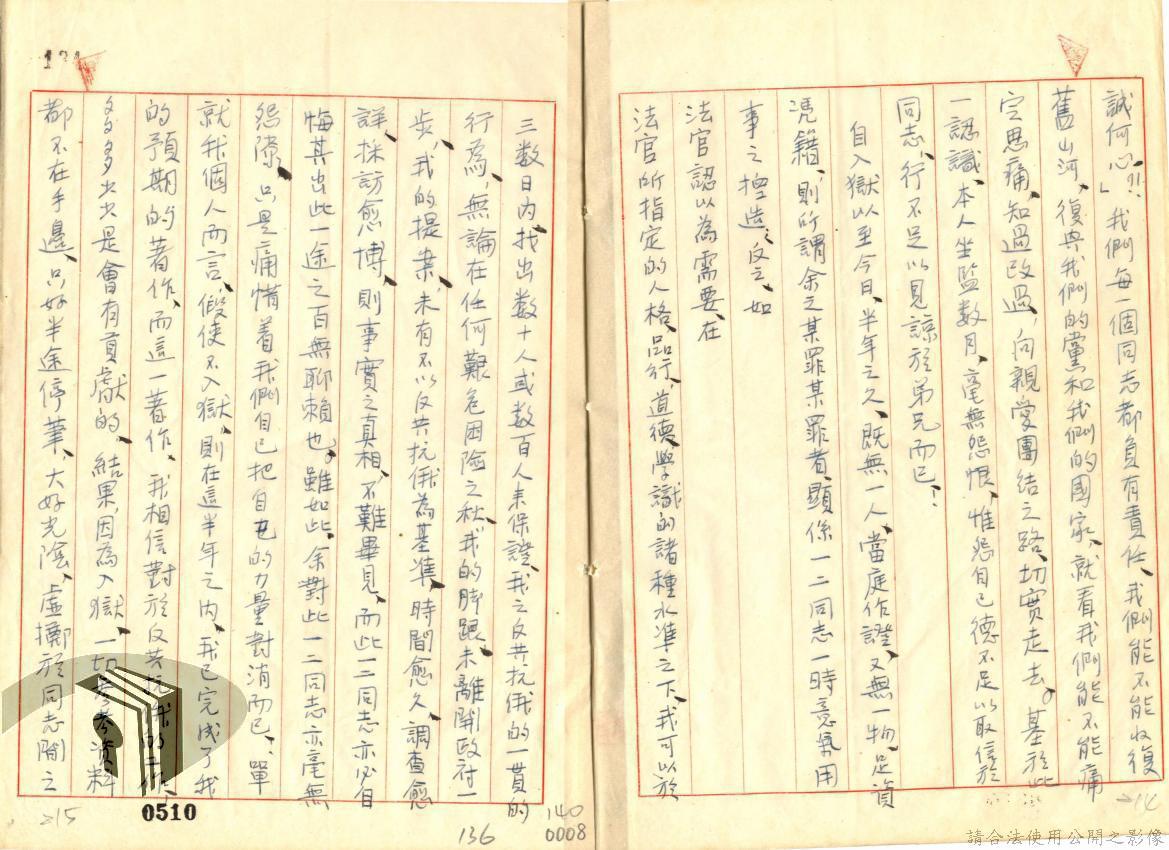 誠何心?!!」我們每一個同志都負有責任、我們能不能收復
舊山河、復興我們的黨和我們的國家、就看我們能不能痛
定思痛、知過改過、向親愛團結之路、切實走去。基於此
一認識、本人坐監数月、毫無怨恨、惟怨自己德不足以取信於
同志、行不足以見諒於弟兄而已!
自入獄以至今日、半年之久、既無一人、當庭作證、又無一物、足資
憑籍、則所謂余之某罪某罪者、顯係一二同志一時意氣用
事之揑造、反之、如
法官認以為需要、在
法官所指定的人格、品行、道德、學識的諸種水準之下、我可以於
三数日内、找出数十人或数百人來保證、我之反共抗俄的一貫的
行為、無論在任何艱危困險之秋、我的脚跟、未離開政府一
步、我的提案、未有不以反共抗俄為基準、時間愈久、調查愈
詳、採訪愈博、則事實之真相、不難畢見、而此一二同志亦必自
悔其出此一途之百無聊賴也。雖如此、余對此一二同志亦毫無
怨隙、只是痛惜着我們自己把自己的力量對消而已、單
就我個人而言、假使不入獄、則在這半年之内、我已完成了我
的預期的著作、而這一著作、我相信對於反共抗俄的工作、
多多少少是會有貢獻的、結果、因為入獄、一切參考資料
都不在手邊、只好半途停筆、大好光陰、虛擲於同志鬩之
215
0510
136
140
0008
214
請合法使用公開之影像